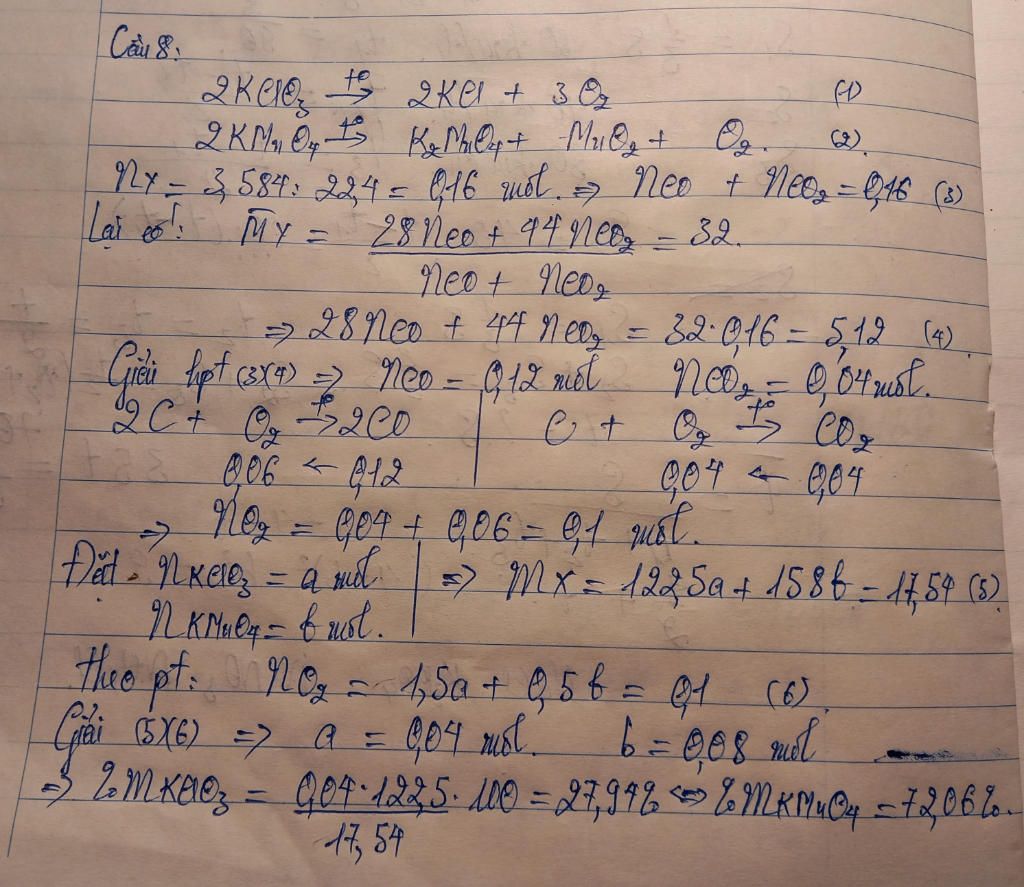 Câu 8:
2KClO₃ →t° 2KCl + 3O₂ (1)
2KMnO₄ →t° K₂MnO₄ + MnO₂ + O₂. (2).
nY = 3,584 : 22,4 = 0,16 mol. ⇒ nCO + nCO₂ = 0,16 (3)
Lại có: M̅Y = (28nCO + 44nCO₂) / (nCO + nCO₂) = 32.
⇒ 28nCO + 44nCO₂ = 32·0,16 = 5,12 (4).
Giải hpt (3)(4) ⇒ nCO = 0,12 mol nCO₂ = 0,04 mol.
2C + O₂ →t° 2CO | C + O₂ →t° CO₂
0,06 ← 0,12 | 0,04 ← 0,04
⇒ nO₂ = 0,04 + 0,06 = 0,1 mol.
Đặt nKClO₃ = a mol | ⇒ mX = 122,5a + 158b = 17,54 (5)
nKMnO₄ = b mol.
Theo pt: nO₂ = 1,5a + 0,5b = 0,1 (6).
Giải (5)(6) ⇒ a = 0,04 mol. b = 0,08 mol
⇒ %mKClO₃ = (0,04·122,5 / 17,54)·100 = 27,94% ⇔ %mKMnO₄ = 72,06%.